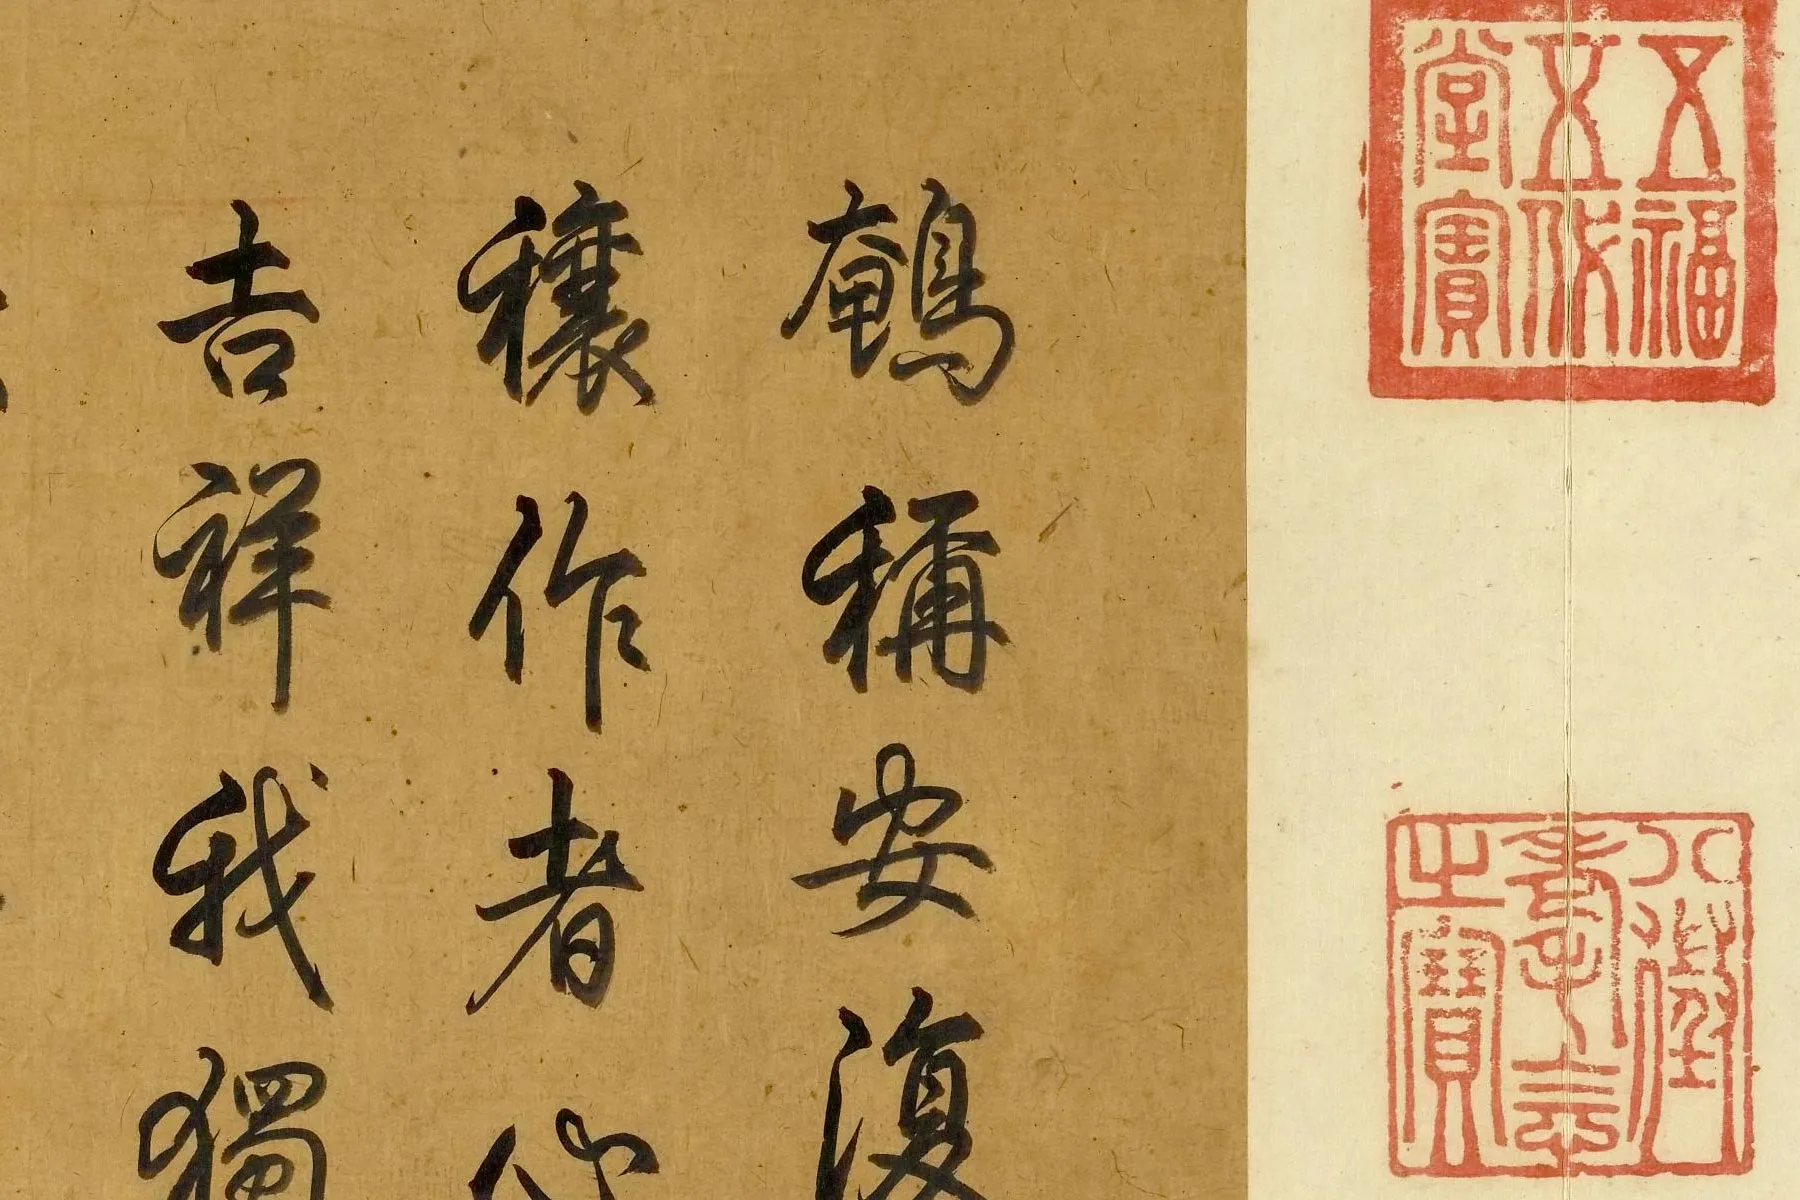 五福
五代
堂寶
八徵
耄念
之寶
鵪稱安復
穰作者心
吉祥我獨